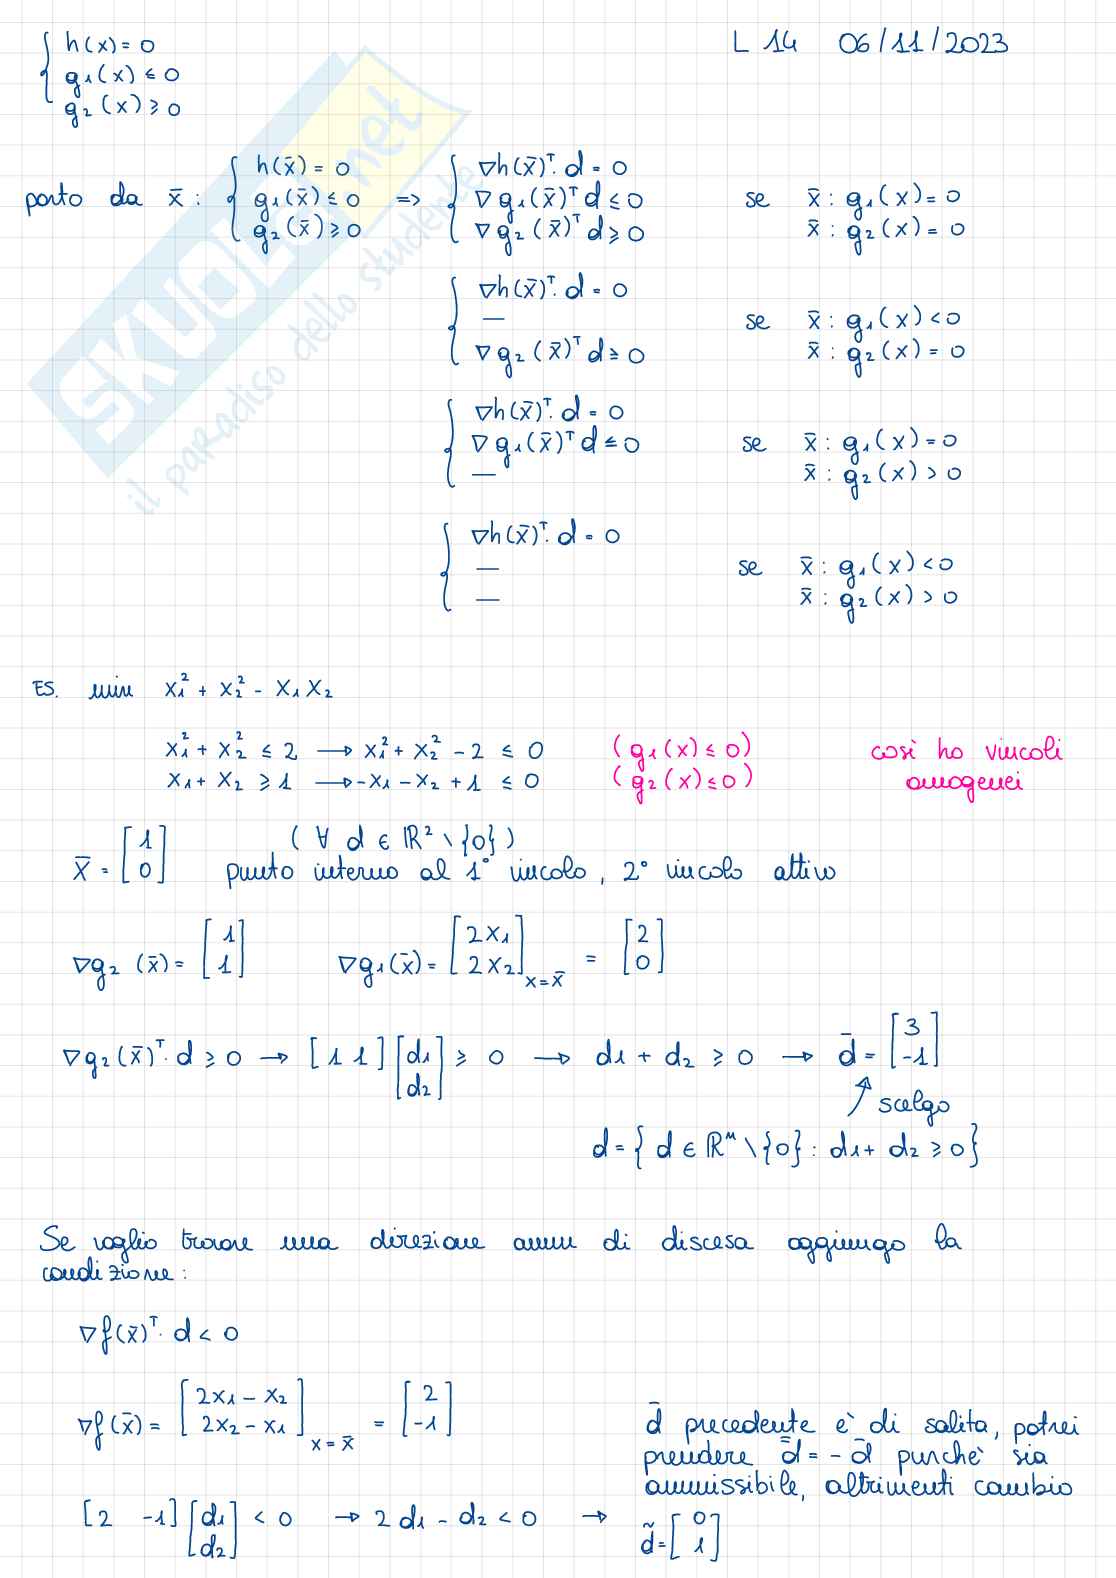 L 14 06/11/2023
{ h(x) = 0
g₁(x) ≤ 0
g₂(x) ≥ 0
parto da x̄ : { h(x̄) = 0 => { ∇h(x̄)ᵀ· d = 0
g₁(x̄) ≤ 0 ∇g₁(x̄)ᵀ d ≤ 0 se x̄ : g₁(x) = 0
g₂(x̄) ≥ 0 ∇g₂(x̄)ᵀ d ≥ 0 x̄ : g₂(x) = 0
{ ∇h(x̄)ᵀ· d = 0
— se x̄ : g₁(x) < 0
∇g₂(x̄)ᵀ d ≥ 0 x̄ : g₂(x) = 0
{ ∇h(x̄)ᵀ· d = 0
∇g₁(x̄)ᵀ d ≤ 0 se x̄ : g₁(x) = 0
— x̄ : g₂(x) > 0
{ ∇h(x̄)ᵀ· d = 0
— se x̄ : g₁(x) < 0
— x̄ : g₂(x) > 0
ES. min x₁² + x₂² - x₁x₂
x₁² + x₂² ≤ 2 → x₁² + x₂² - 2 ≤ 0 (g₁(x) ≤ 0) così ho vincoli
x₁ + x₂ ≥ 1 → -x₁ - x₂ + 1 ≤ 0 (g₂(x) ≤ 0) omogenei
x̄ = [1 0] (∀ d ∈ ℝ² \ {0})
punto interno al 1° vincolo, 2° vincolo attivo
∇g₂(x̄) = [1 1] ∇g₁(x̄) = [2x₁ 2x₂] x=x̄ = [2 0]
∇g₂(x̄)ᵀ· d ≥ 0 → [1 1][d₁ d₂] ≥ 0 → d₁ + d₂ ≥ 0 → d̄ = [3 -1]
scelgo
d = { d ∈ ℝⁿ \ {0} : d₁ + d₂ ≥ 0 }
Se voglio trovare una direzione amm di discesa aggiungo la
condizione:
∇f(x̄)ᵀ· d < 0
∇f(x̄) = [2x₁ - x₂ 2x₂ - x₁] x=x̄ = [2 -1]
d̄ precedente è di salita, potrei
prendere d̿ = -d̄ purchè sia
ammissibile, altrimenti cambio
[2 -1][d₁ d₂] < 0 → 2d₁ - d₂ < 0 → d̃ = [0 1]
SKUOLA.net
il paradiso dello studente